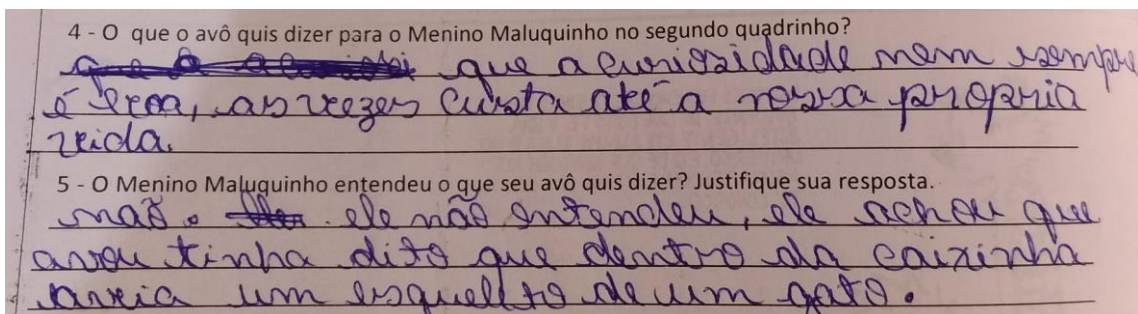 4 - O que o avô quis dizer para o Menino Maluquinho no segundo quadrinho?
que a curiosidade nem sempre
é boa, as vezes custa até a nossa propria
vida.
5 - O Menino Maluquinho entendeu o que seu avô quis dizer? Justifique sua resposta.
não. ele não entendeu, ele achou que
avou tinha dito que dentro da caixinha
avia um esquelto de um gato.